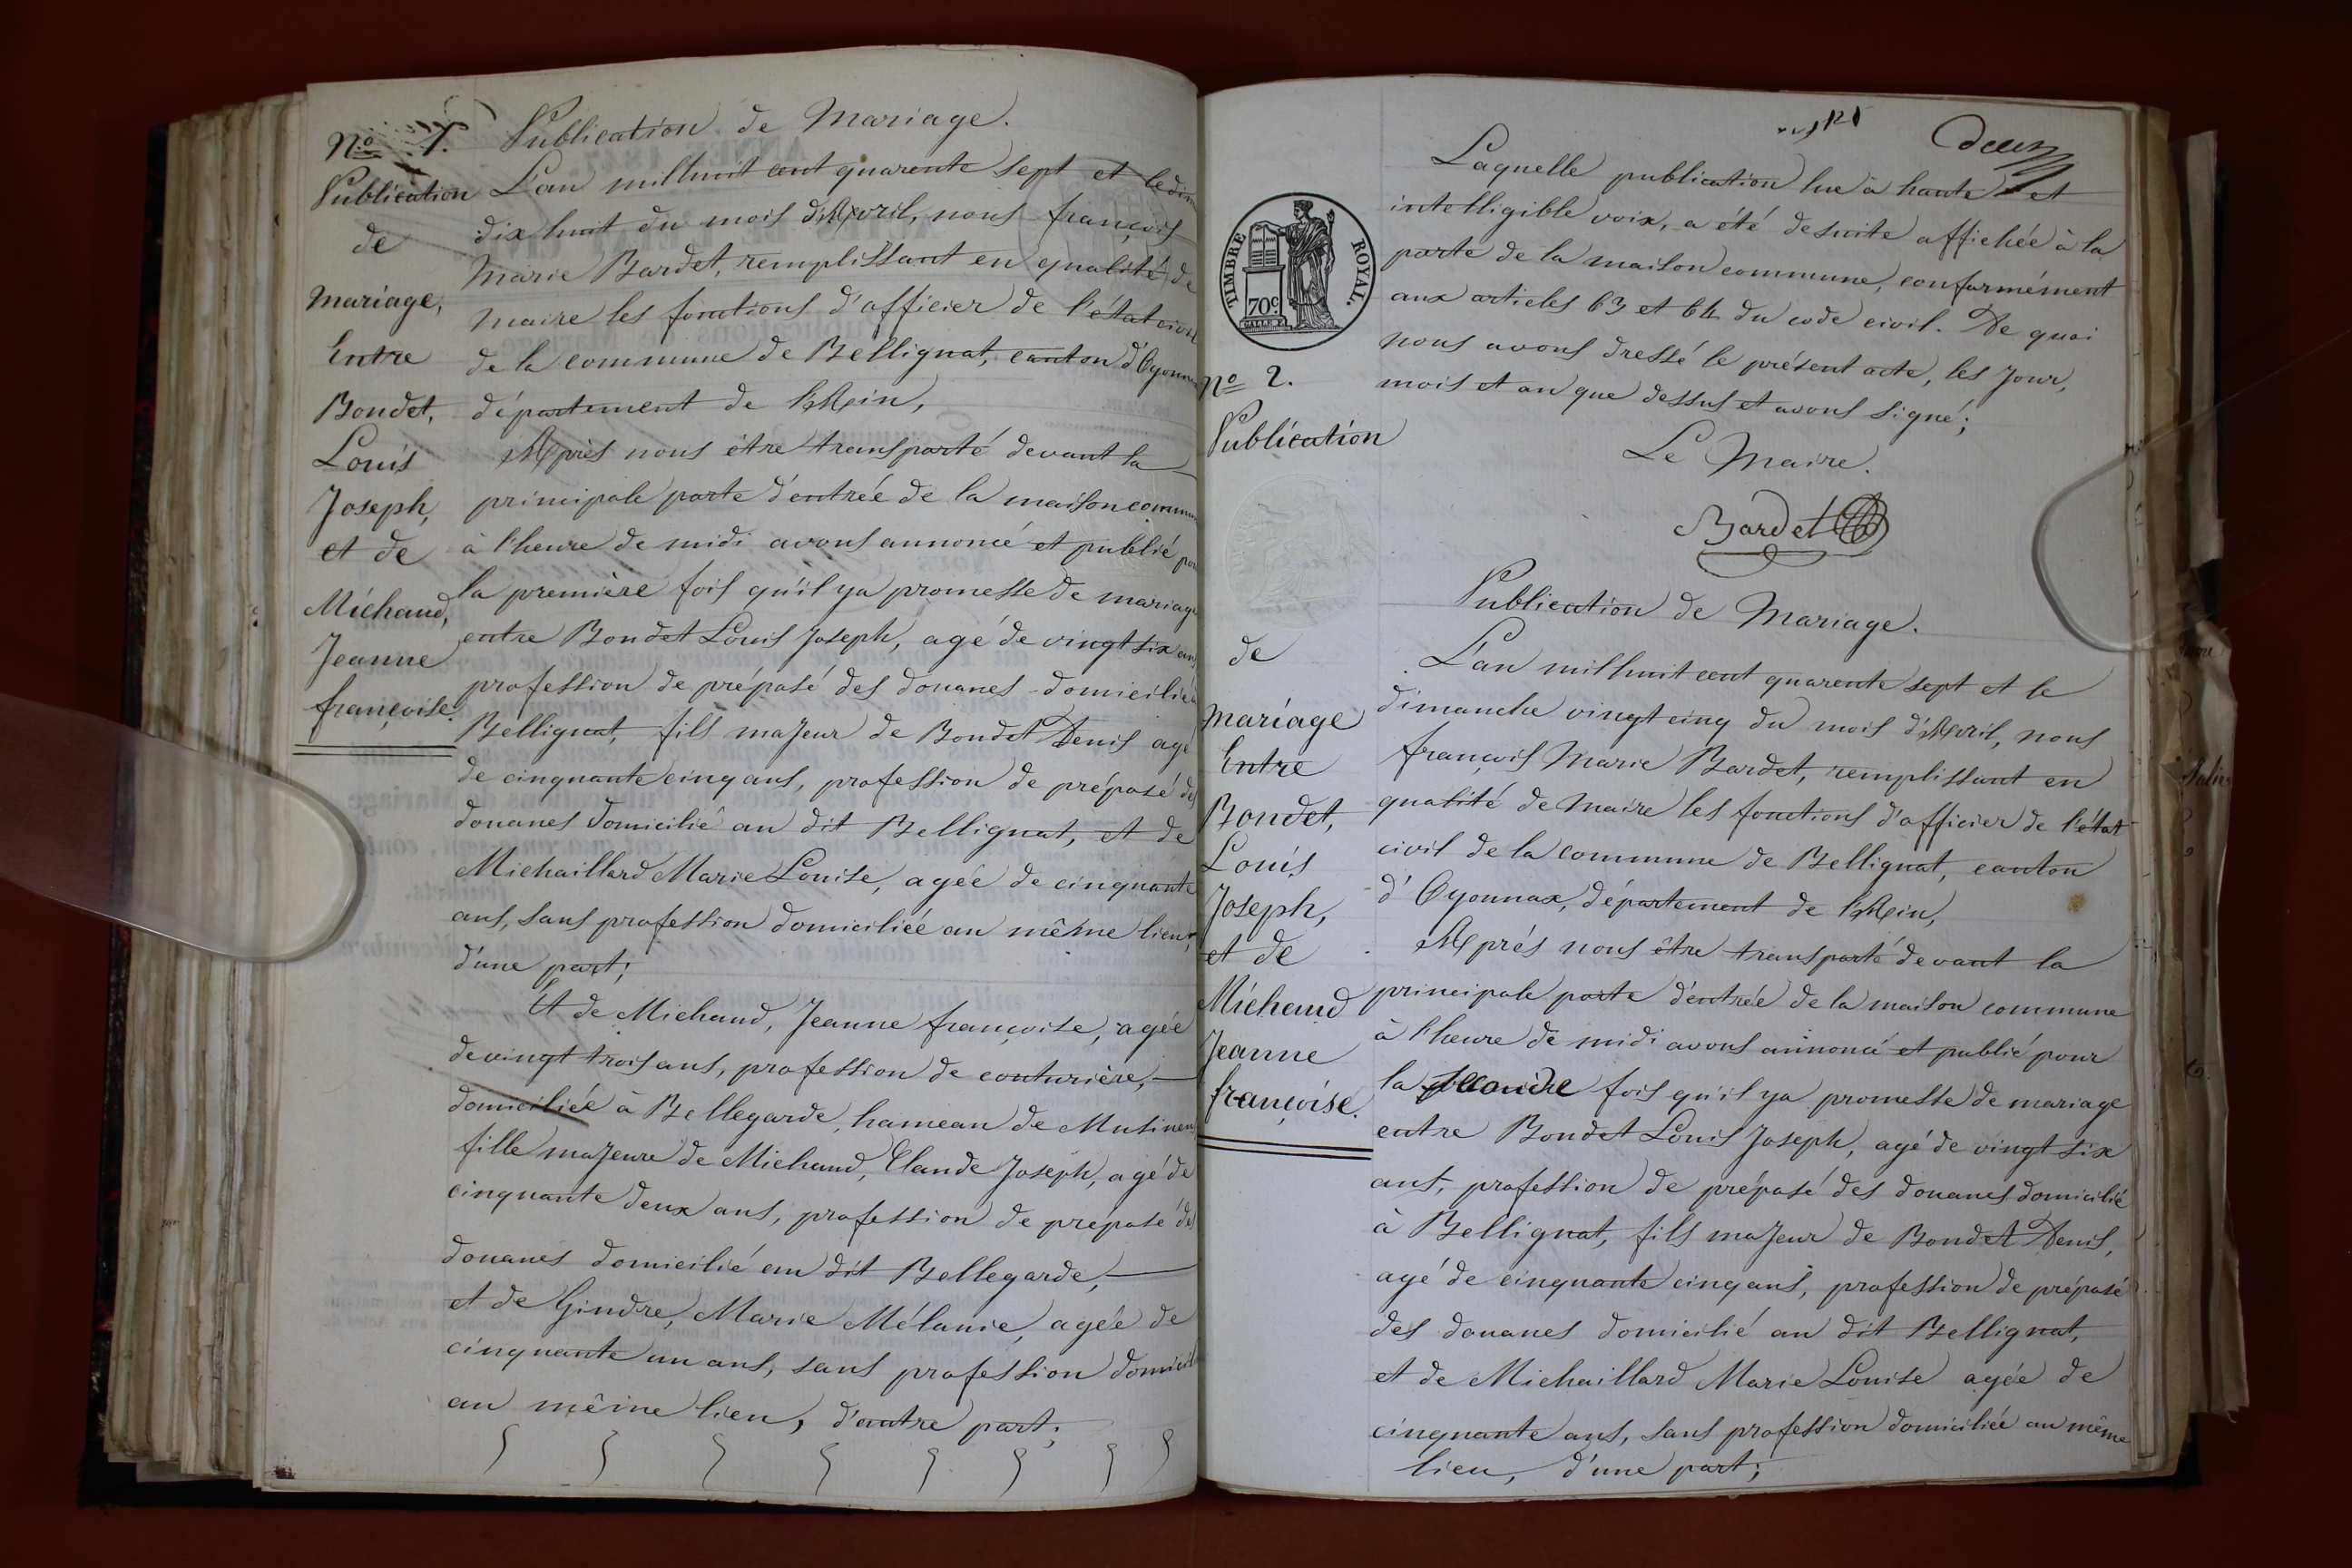 No 1.
Publication
de
Mariage,
Entre
Bondet,
Louis
Joseph,
et de
Michaud,
Jeanne
françoise.
Publication de Mariage.
L'an mil huit cent quarante sept et le dim
dix huit du mois d'Avril, nous françois
Marie Bardet, remplissant en qualité de
Maire les fonctions d'officier de l'état civil
de la commune de Bellignat, canton d'Oyonn
département de l'Ain,
Après nous être transporté devant la
principale porte d'entrée de la maison commun
à l'heure de midi avons annoncé et publié pou
la première fois qu'il ya promesse de mariage
entre Bondet Louis Joseph, agé de vingt six ans
profession de préposé des douanes - domicilié à
Bellignat, fils majeur de Bondet Denis agé
de cinquante cinq ans, profession de préposé des
douanes domicilié au dit Bellignat, et de
Michaillard Marie Louise, agée de cinquante
ans, sans profession domiciliée au même lieu,
d'une part;
Et de Michaud, Jeanne françoise, agée
de vingt trois ans, profession de couturière,
domiciliée à Bellegarde, hameau de Musinen
fille majeure de Michaud, Claude Joseph, agé de
cinquante deux ans, profession de preposé des
douanes domicilié au dit Bellegarde,
et de Gindre, Marie Mélanie, agée de
cinquante un ans, sans profession domicili
au même lieu, d'autre part;
deux
Laquelle publication lue à haute et
intelligible voix, a été de suite affichée à la
porte de la maison commune, conformément
aux articles 63 et 64 du code civil. De quoi
nous avons dressé le présent acte, les jour,
mois et an que dessus et avons signé;
Le Maire.
Bardet
TIMBRE ROYAL.
70c
No 2.
Publication
de
Mariage
Entre
Bondet,
Louis
Joseph,
et de
Michaud
Jeanne
françoise.
Publication de Mariage.
L'an mil huit cent quarante sept et le
dimanche vingt cinq du mois d'Avril, nous
françois Marie Bardet, remplissant en
qualité de Maire les fonctions d'officier de l'état
civil de la commune de Bellignat, canton
d'Oyonnax, département de l'Ain,
Après nous être transporté devant la
principale porte d'entrée de la maison commune
à l'heure de midi avons annoncé et publié pour
la seconde fois qu'il ya promesse de mariage
entre Bondet Louis Joseph, agé de vingt six
ans, profession de préposé des douanes domicilié
à Bellignat, fils majeur de Bondet Denis,
agé de cinquante cinq ans, profession de préposé
des douanes domicilié au dit Bellignat,
et de Michaillard Marie Louise agée de
cinquante ans, sans profession domiciliée au même
lieu, d'une part;